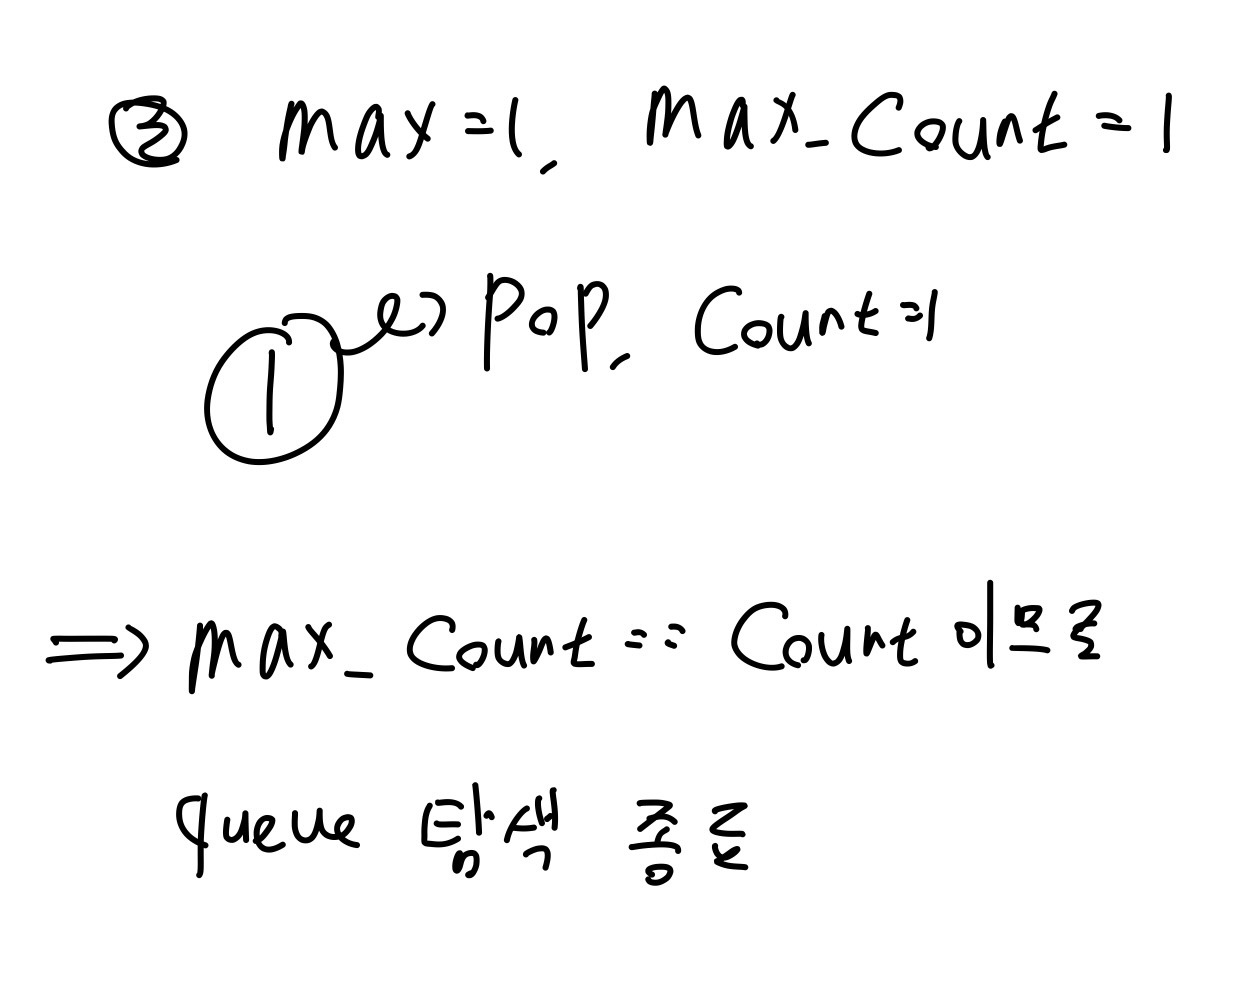 ③ max=1, max_Count=1
① pop, Count=1
⇒ max_Count == Count 이므로
Queue 탐색 종료